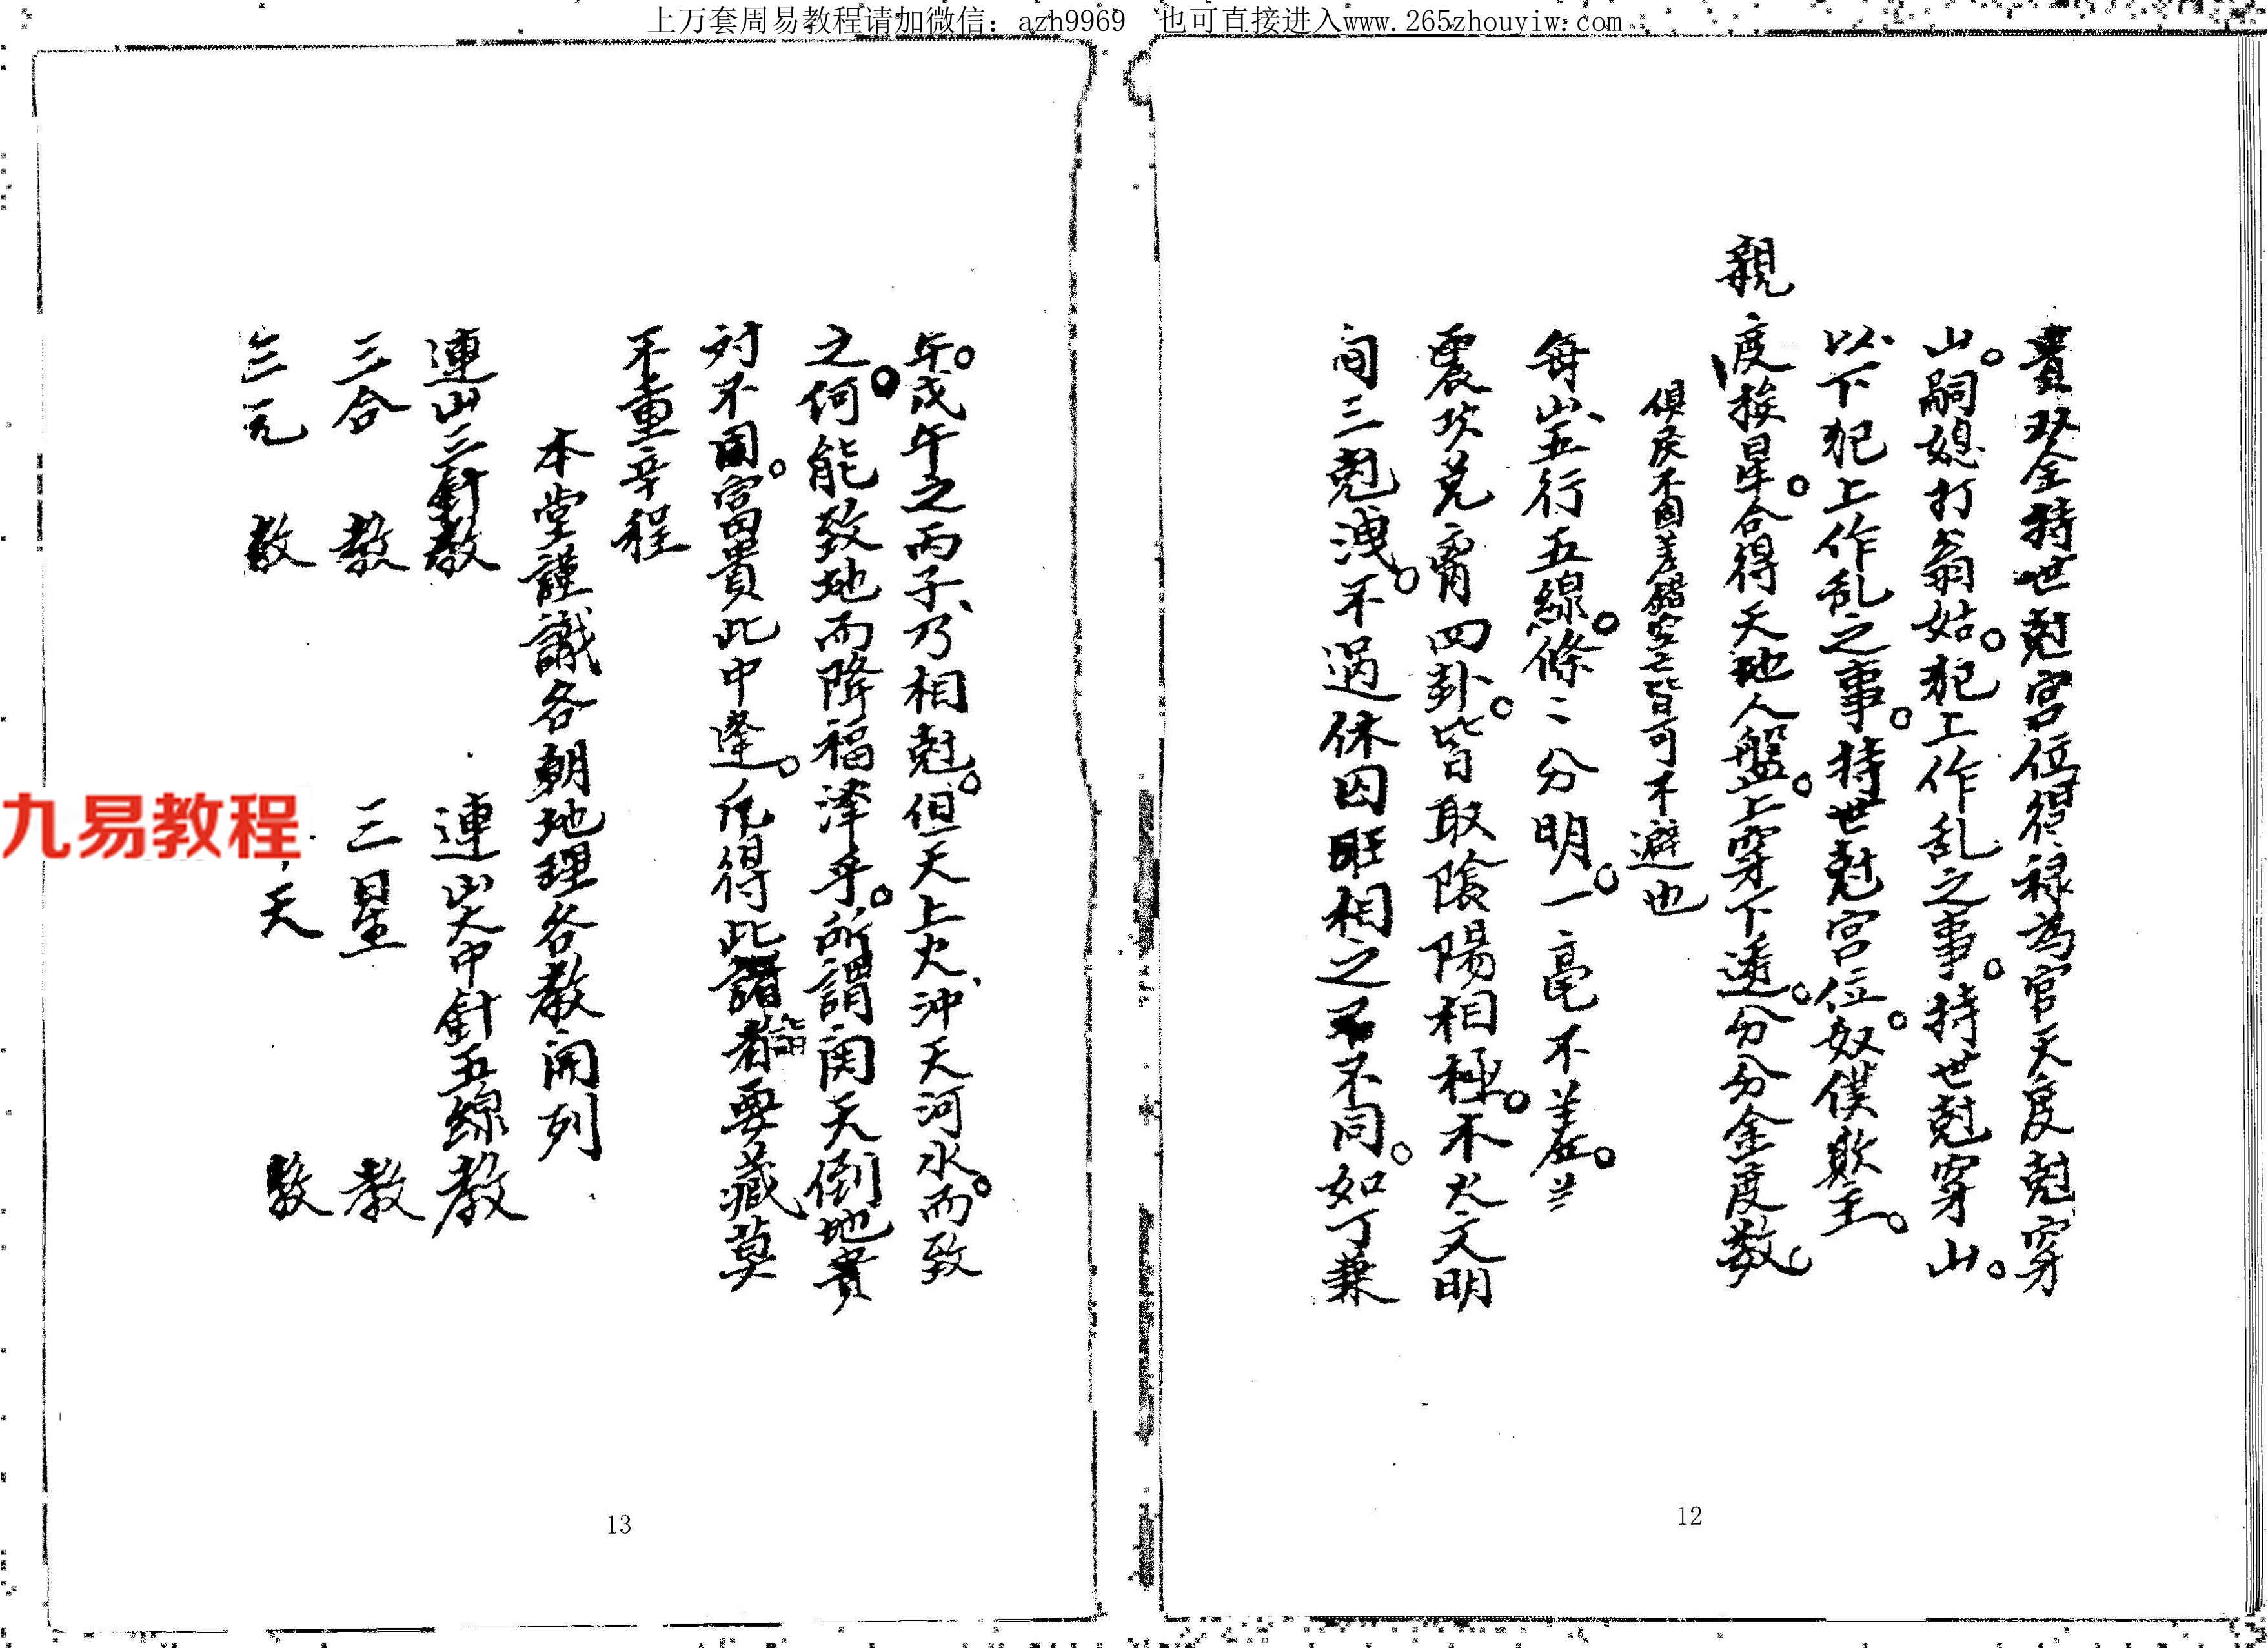 上万套周易教程请加微信：azh9969　也可直接进入www.265zhouyiw.com
貴双全持世尅宮位得禄為官天度尅穿
山。嗣媳打翁姑。犯上作乱之事。持世尅穿山。
以下犯上作乱之事。持世尅宮位。奴僕欺主。
親度挨星。合得天地人盤。上穿下透。分分金度数。
俱度不同差錯空亡皆可不避也
每山、五行五線。條〻分明。一毫不差。兰
震坎兑 四卦。皆取陰陽相極。不犬文明
间三尅洩。不過休囚旺相之不同。如丁兼
12
午。戊午之丙子、乃相尅。但天上火、沖天河水。而致
之。何能致地而降福泽乎。所謂関天倒地貴
对不同。富貴此中逢。凡得此諸者要藏莫
不重辛程
本堂謹識各朝地理各教開列
連山三針教　連山大中針五線教
三合教　三星教
三元教　天教
13
九易教程